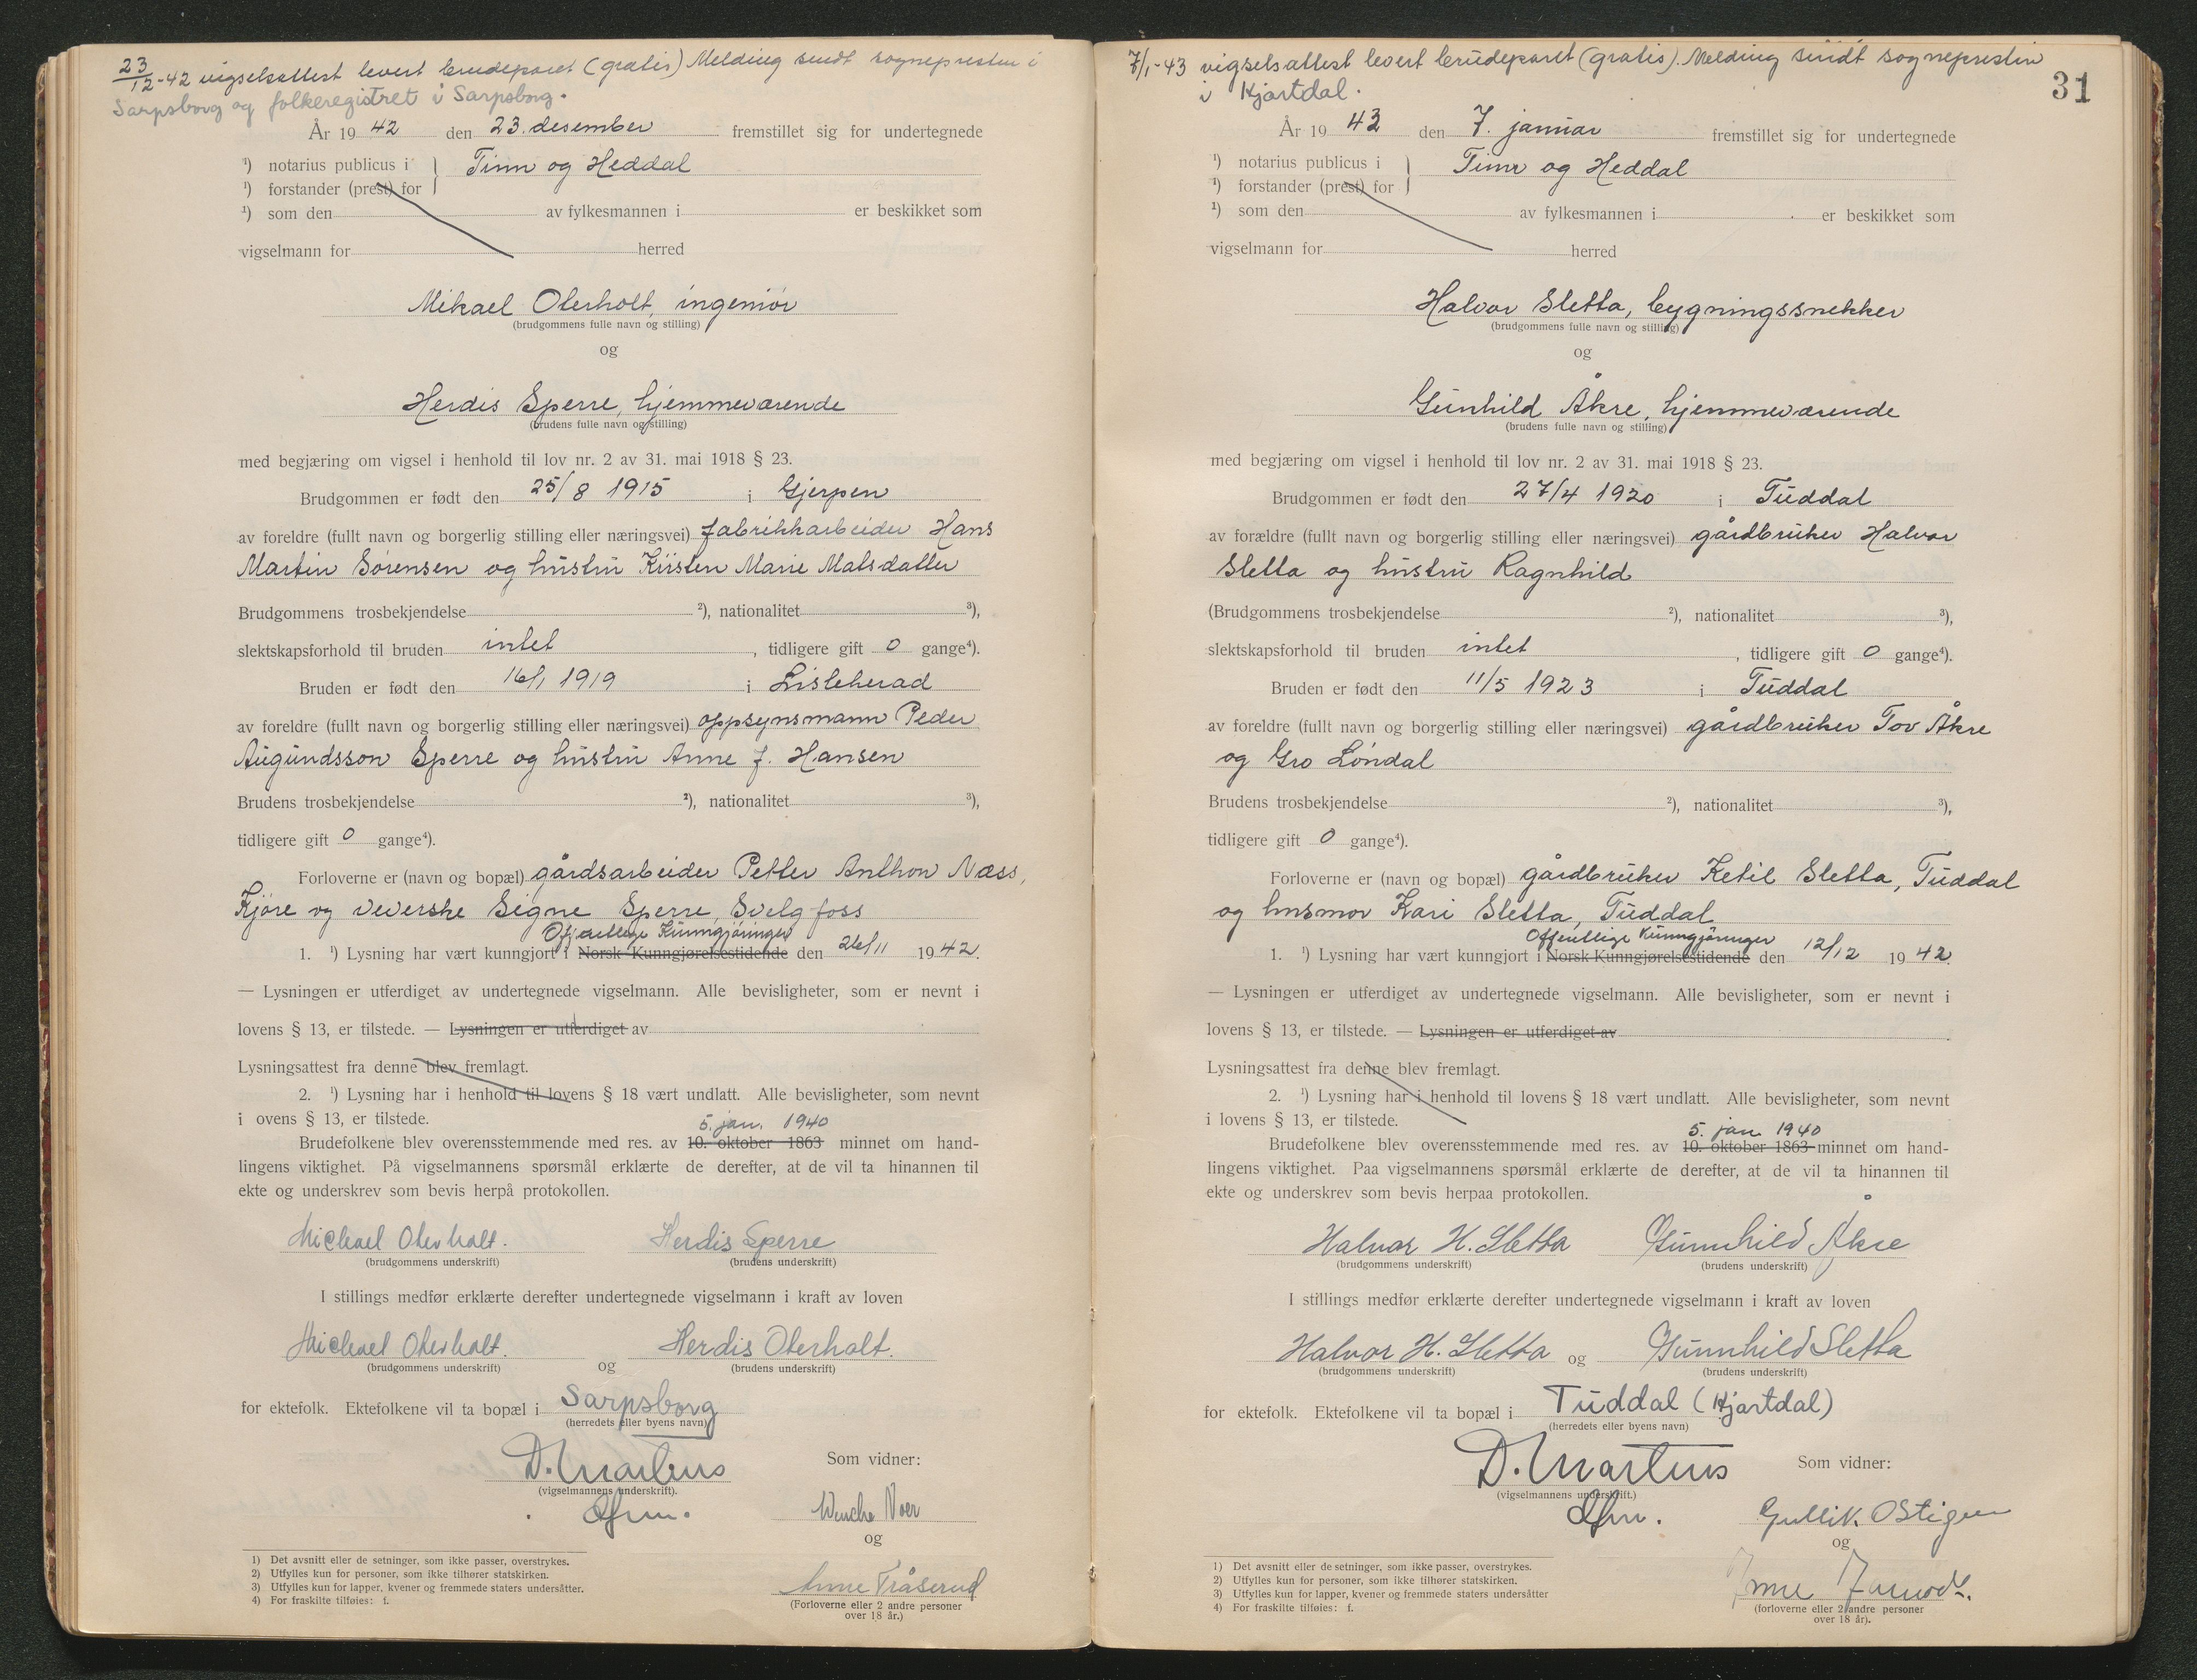 23/12-42 vigselsattest levert brudeparet (gratis) Melding sendt sognepresten i
Sarpsborg og folkeregistret i Sarpsborg.
År 19 42 den 23. desember fremstillet sig for undertegnede
¹) notarius publicus i } Tinn og Heddal
¹) forstander (prest) for
¹) som den av fylkesmannen i er beskikket som
vigselmann for herred
Mikael Oterholt, ingeniør
(brudgommens fulle navn og stilling)
og
Herdis Sperre, hjemmeværende
(brudens fulle navn og stilling)
med begjæring om vigsel i henhold til lov nr. 2 av 31. mai 1918 § 23.
Brudgommen er født den 25/8 1915 i Gjerpen
av foreldre (fullt navn og borgerlig stilling eller næringsvei) fabrikkarbeider Hans
Martin Sørensen og hustru Kirsten Marie Matsdatter
Brudgommens trosbekjendelse ²), nationalitet ³),
slektskapsforhold til bruden intet, tidligere gift 0 gange⁴).
Bruden er født den 16/1 1919 i Lisleherad
av foreldre (fullt navn og borgerlig stilling eller næringsvei) oppsynsmann Peder
Augundsson Sperre og hustru Anne J. Hansen
Brudens trosbekjendelse ²), nationalitet ³),
tidligere gift 0 gange⁴).
Forloverne er (navn og bopæl) gårdsarbeider Petter Anthon Næss,
Kjøre og veverske Signe Sperre, Svelgfoss
Offentlige Kunngjøringer
1. ¹) Lysning har vært kunngjort i Norsk Kunngjørelsestidende den 26/11 1942.
— Lysningen er utferdiget av undertegnede vigselmann. Alle bevisligheter, som er nevnt i
lovens § 13, er tilstede. — Lysningen er utferdiget av
Lysningsattest fra denne blev fremlagt.
2. ¹) Lysning har i henhold til lovens § 18 vært undlatt. Alle bevisligheter, som nevnt
i ovens § 13, er tilstede.
5. jan. 1940
Brudefolkene blev overensstemmende med res. av 10. oktober 1863 minnet om hand-
lingens viktighet. På vigselmannens spørsmål erklærte de derefter, at de vil ta hinannen til
ekte og underskrev som bevis herpå protokollen.
Michael Oterholt. Herdis Sperre
(brudgommens underskrift) (brudens underskrift)
I stillings medfør erklærte derefter undertegnede vigselmann i kraft av loven
Michael Oterholt. og Herdis Oterholt.
(brudgommens underskrift) (brudens underskrift)
for ektefolk. Ektefolkene vil ta bopæl i Sarpsborg
(herredets eller byens navn)
D. Martens
(vigselmannens underskrift).
Som vidner:
Wenche Noer
og
Anne Tråserud
(Forloverne eller 2 andre personer
over 18 år.)
1) Det avsnitt eller de setninger, som ikke passer, overstrykes.
2) Utfylles kun for personer, som ikke tilhører statskirken.
3) Utfylles kun for lapper, kvener og fremmede staters undersåtter.
4) For fraskilte tilføies: f.
31
7/1-43 vigselsattest levert brudeparet (gratis). Melding sendt sognepresten
i Hjartdal.
År 19 43 den 7. januar fremstillet sig for undertegnede
¹) notarius publicus i } Tinn og Heddal
¹) forstander (prest) for
¹) som den av fylkesmannen i er beskikket som
vigselmann for herred
Halvor Sletta, bygningssnekker
(brudgommens fulle navn og stilling)
og
Gunhild Åkre, hjemmeværende
(brudens fulle navn og stilling)
med begjæring om vigsel i henhold til lov nr. 2 av 31. mai 1918 § 23.
Brudgommen er født den 27/4 1920 i Tuddal
av forældre (fullt navn og borgerlig stilling eller næringsvei) gårdbruker Halvor
Sletta og hustru Ragnhild
(Brudgommens trosbekjendelse ²), nationalitet ³),
slektskapsforhold til bruden intet, tidligere gift 0 gange⁴).
Bruden er født den 11/5 1923 i Tuddal
av foreldre (fullt navn og borgerlig stilling eller næringsvei) gårdbruker Tov Åkre
og Gro Løndal
Brudens trosbekjendelse ²), nationalitet ³),
tidligere gift 0 gange⁴).
Forloverne er (navn og bopæl) gårdbruker Ketil Sletta, Tuddal
og husmor Kari Sletta, Tuddal
Offentlige Kunngjøringer
1. ¹) Lysning har vært kunngjort i Norsk Kunngjørelsestidende den 12/12 1942.
— Lysningen er utferdiget av undertegnede vigselmann. Alle bevisligheter, som er nevnt i
lovens § 13, er tilstede. — Lysningen er utferdiget av
Lysningsattest fra denne blev fremlagt.
2. ¹) Lysning har i henhold til lovens § 18 vært undlatt. Alle bevisligheter, som nevnt
i lovens § 13, er tilstede.
5. jan 1940
Brudefolkene blev overensstemmende med res. av 10. oktober 1863 minnet om hand-
lingens viktighet. Paa vigselmannens spørsmål erklærte de derefter, at de vil ta hinannen til
ekte og underskrev som bevis herpaa protokollen.
Halvor H. Sletta Gunnhild Åkre
(brudgommens underskrift) (brudens underskrift)
I stillings medfør erklærte derefter undertegnede vigselmann i kraft av loven
Halvor H. Sletta og Gunnhild Sletta
(brudgommens underskrift) (brudens underskrift)
for ektefolk. Ektefolkene vil ta bopæl i Tuddal (Hjartdal)
(herredets eller byens navn)
D. Martens
(vigselmannens underskrift.)
Som vidner:
Gullik Ostigen
og
(forloverne eller 2 andre personer
over 18 år).
1) Det avsnitt eller de setninger, som ikke passer, overstrykes.
2) Utfylles kun for personer, som ikke tilhører statskirken.
3) Utfylles kun for lapper, kvener og fremmede staters undersåtter
4) For fraskilte tilføies: f.